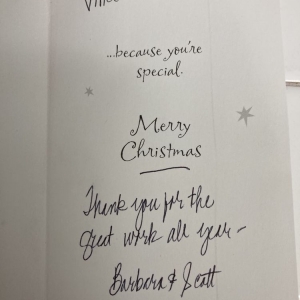 ...because you're
special.
Merry
Christmas
Thank you for the
great work all year -
Barbara & Scott